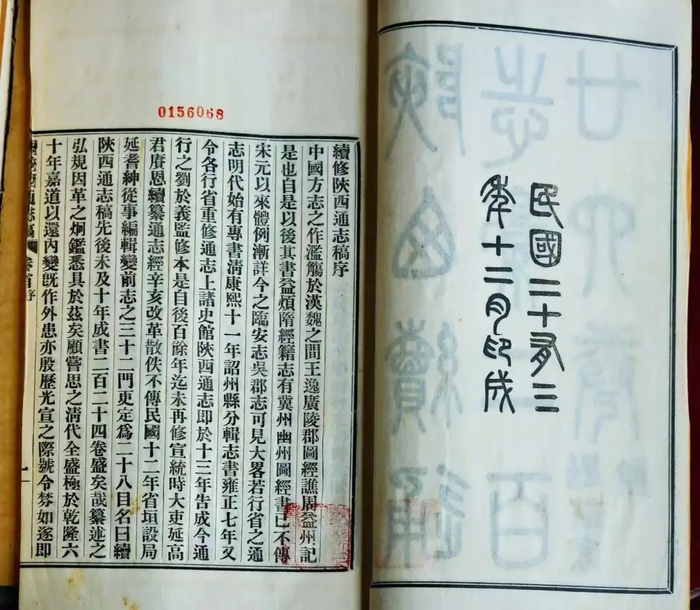 民國二十有三
年十二月印成
0156068
續修陝西通志稿序
中國方志之作濫觴於漢魏之間王逸廣陵郡圖經譙周益州記
是也自是以後其書益煩隋經籍志有冀州幽州圖經書已不傳
宋元以來體例漸詳今之臨安志吳郡志可見大畧若行省之通
志明代始有專書清康熙十一年詔州縣分輯志書雍正七年又
令各行省重修通志上諸史館陝西通志即於十三年告成今通
行之劉於義監修本是自後百餘年迄未再修宣統時大吏延高
君賡恩續纂通志經辛亥改革散佚不傳民國十二年省垣設局
延耆紳從事編輯變前志之三十一門更定爲二十八目名曰續
陝西通志稿先後未及十年成書二百二十四卷盛矣哉纂述之
弘規因革之炯鑑悉具於茲矣顧嘗思之清代全盛極於乾隆六
十年嘉道以還內變旣作外患亦殷歷光宣之際號令棼如逐即
通志稿 卷首序 一